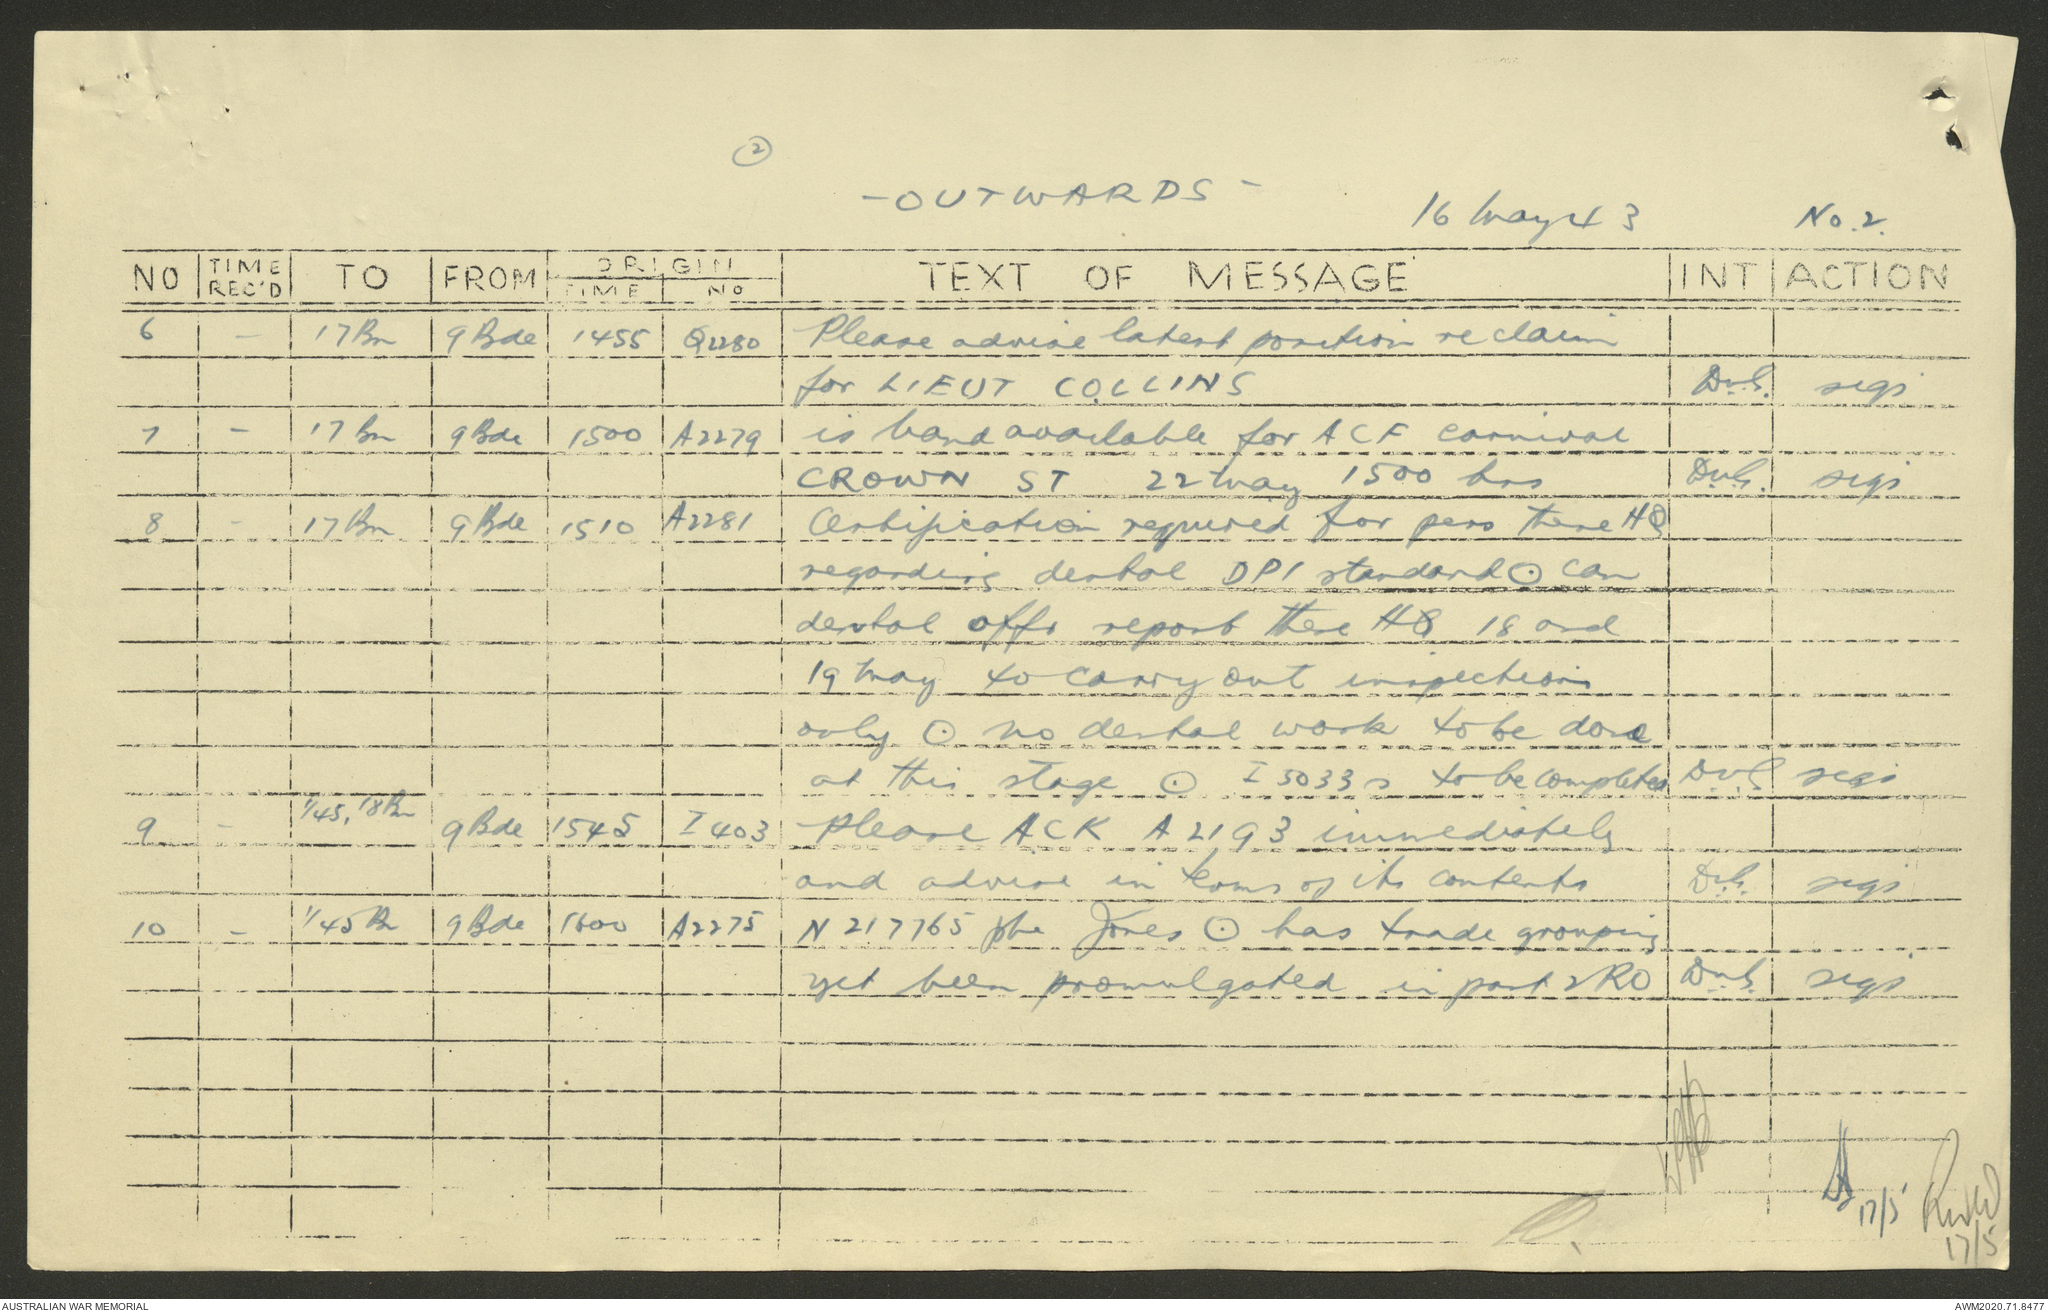 ②
- OUTWARDS -
16 May 43 No. 2.
NO TIME REC'D TO FROM ORIGIN TIME NO TEXT OF MESSAGE INT ACTION
6 - 17 Bn 9 Bde 1455 Q2280 Please advise latest position re claim
for LIEUT COLLINS D.v.S. sigs
7 - 17 Bn 9 Bde 1500 A2279 is band available for ACF carnival
CROWN ST 22 May 1500 hrs D.v.S. sigs
8 - 17 Bn 9 Bde 1510 A2281 Certification required for pers there HQ
regarding dental DP1 standard ⊙ can
dental offr report there HQ 18 and
19 May to carry out inspections
only ⊙ no dental work to be done
at this stage ⊙ I 5033 s to be completed D.v.S sigs
9 - 1/45, 18 Bn 9 Bde 1545 I 403 Please ACK A 2193 immediately
and advise in terms of its contents D.v.S. sigs
10 - 1/45 Bn 9 Bde 1600 A2275 N 217765 pte Jones ⊙ has trade grouping
yet been promulgated in part 2 RO D.v.S. sigs
17/5
17/5
AUSTRALIAN WAR MEMORIAL AWM2020.71.8477